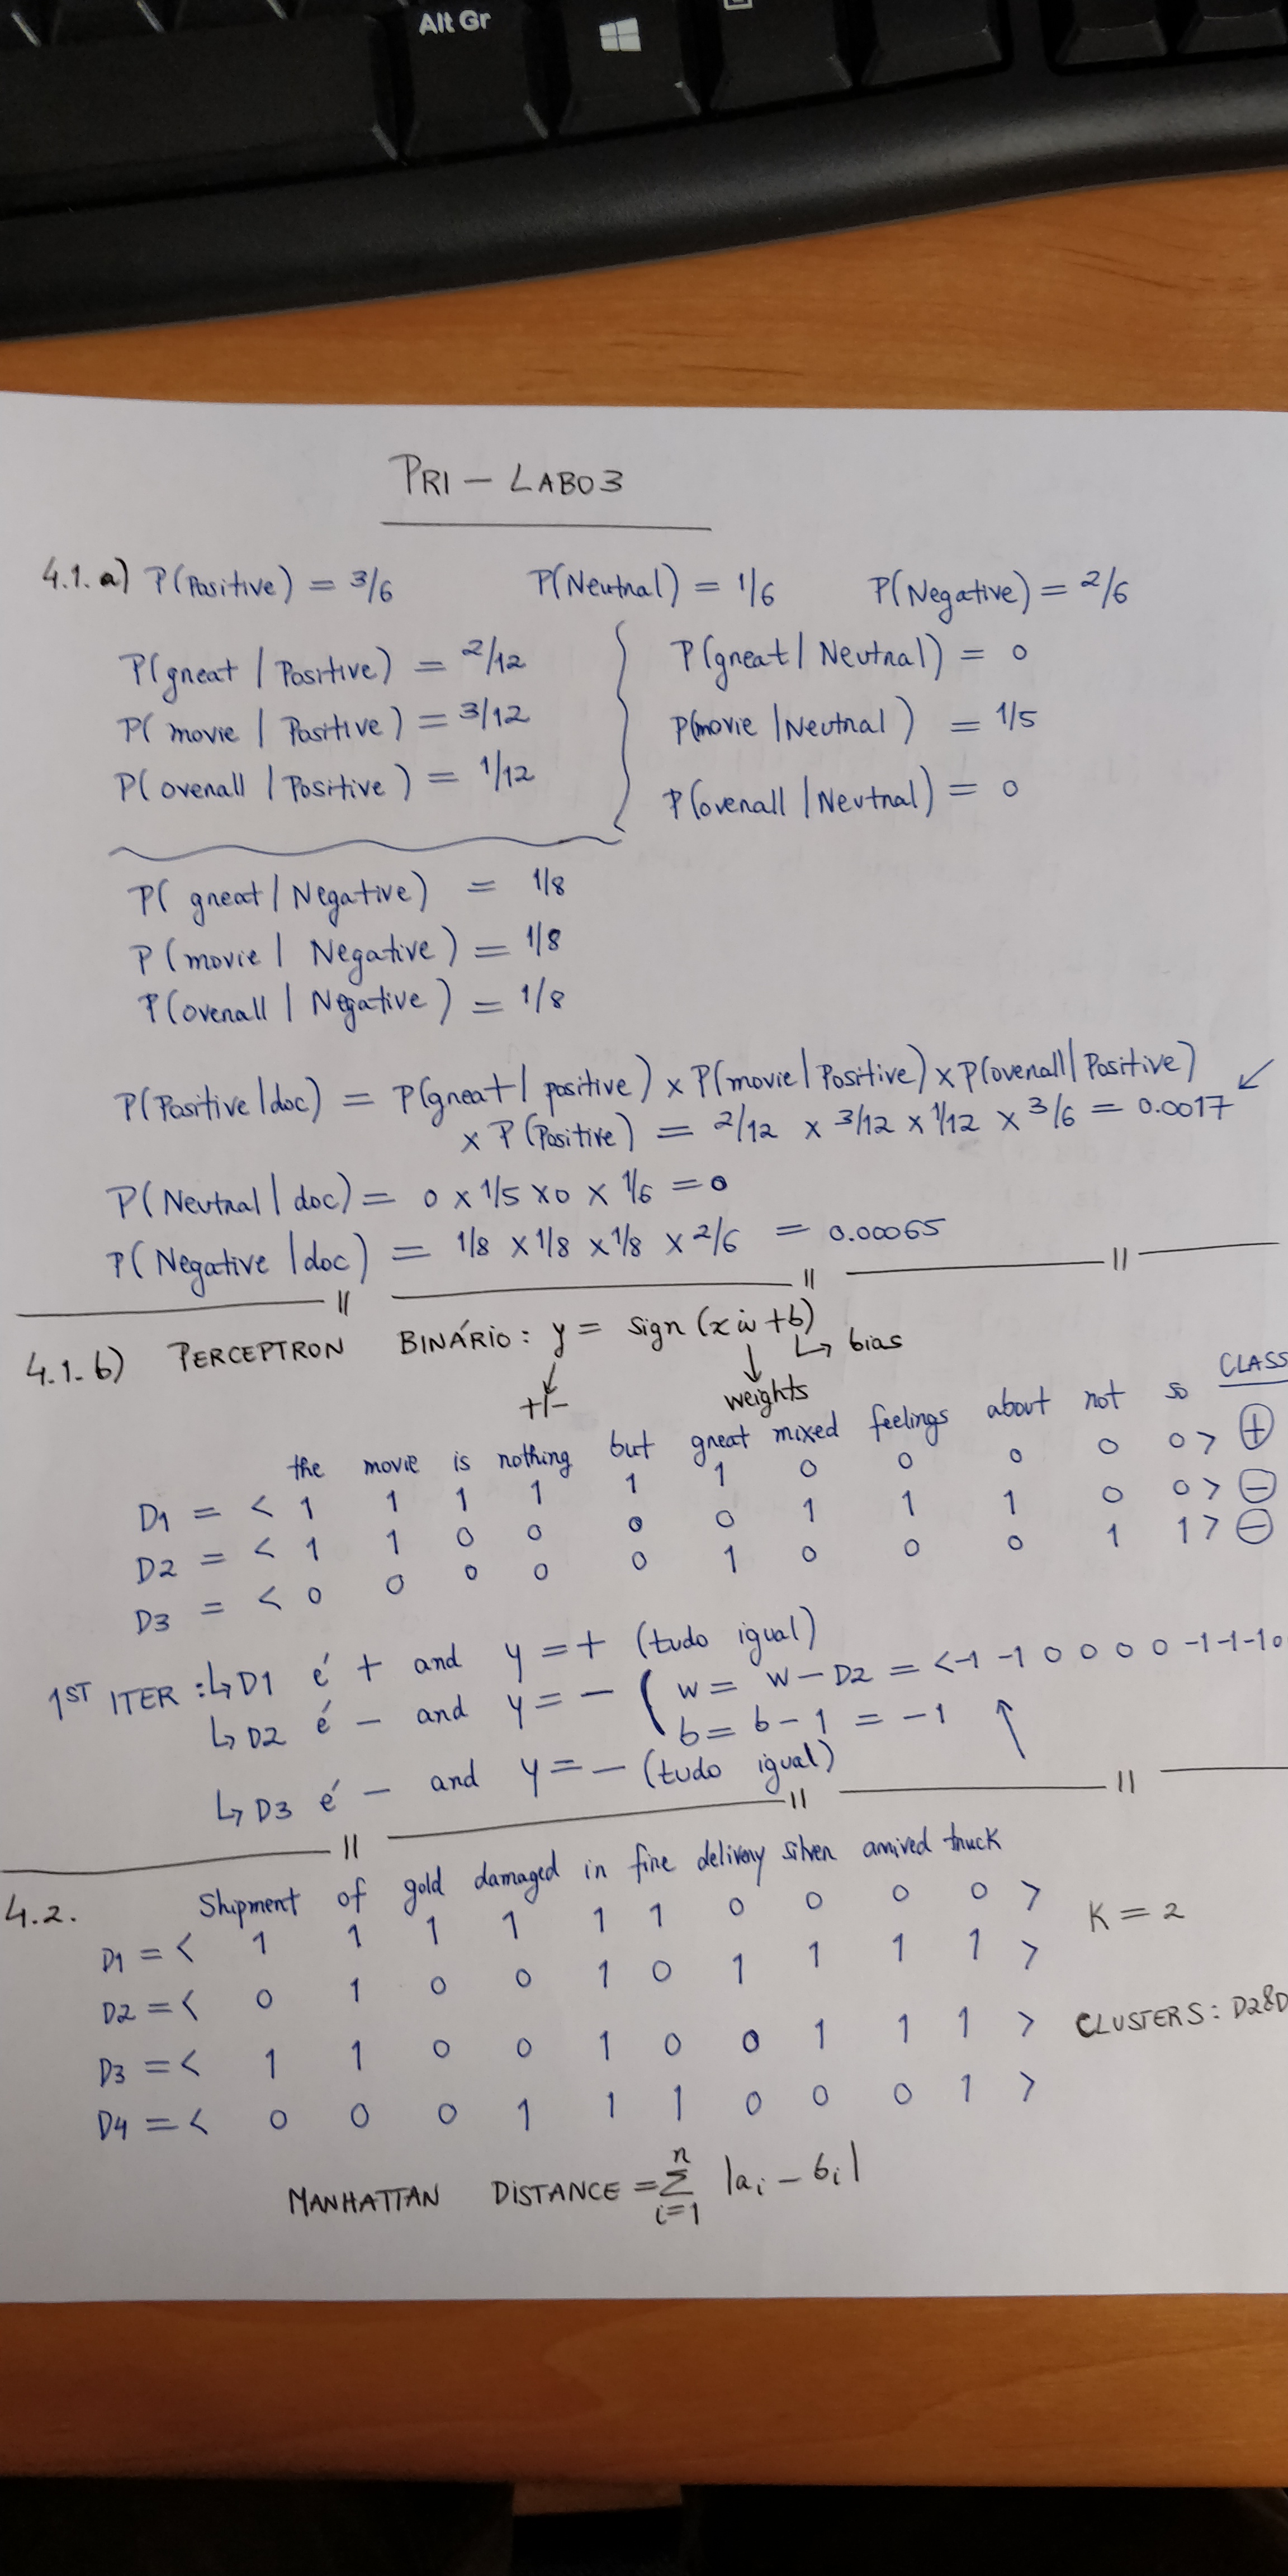 Alt Gr
PRI - LAB03
4.1.a) P(Positive) = 3/6 P(Neutral) = 1/6 P(Negative) = 2/6
P(great | Positive) = 2/12
P(movie | Positive) = 3/12
P(overall | Positive) = 1/12
P(great | Neutral) = 0
P(movie | Neutral) = 1/5
P(overall | Neutral) = 0
P(great | Negative) = 1/8
P(movie | Negative) = 1/8
P(overall | Negative) = 1/8
P(Positive | doc) = P(great | positive) x P(movie | Positive) x P(overall | Positive)
x P(Positive) = 2/12 x 3/12 x 1/12 x 3/6 = 0.0017 ↙
P(Neutral | doc) = 0 x 1/5 x 0 x 1/6 = 0
P(Negative | doc) = 1/8 x 1/8 x 1/8 x 2/6 = 0.00065
4.1.b) PERCEPTRON BINÁRIO: y = sign (x w + b)
↳ bias
+/- weights
CLASS
the movie is nothing but great mixed feelings about not so
D1 = < 1 1 1 1 1 1 0 0 0 0 0 > ⊕
D2 = < 1 1 0 0 0 0 1 1 1 0 0 > ⊖
D3 = < 0 0 0 0 0 1 0 0 0 1 1 > ⊖
1ST ITER: ↳ D1 é + and y = + (tudo igual)
↳ D2 é - and y = - ( w = w - D2 = < -1 -1 0 0 0 0 -1 -1 -1 0
b = b - 1 = -1
↳ D3 é - and y = - (tudo igual)
4.2. Shipment of gold damaged in fire delivery silver arrived truck
D1 = < 1 1 1 1 1 1 0 0 0 0 > K = 2
D2 = < 0 1 0 0 1 0 1 1 1 1 >
D3 = < 1 1 0 0 1 0 0 1 1 1 > CLUSTERS: D2&D
D4 = < 0 0 0 1 1 1 0 0 0 1 >
MANHATTAN DISTANCE = n Σ i=1 |ai - bi|